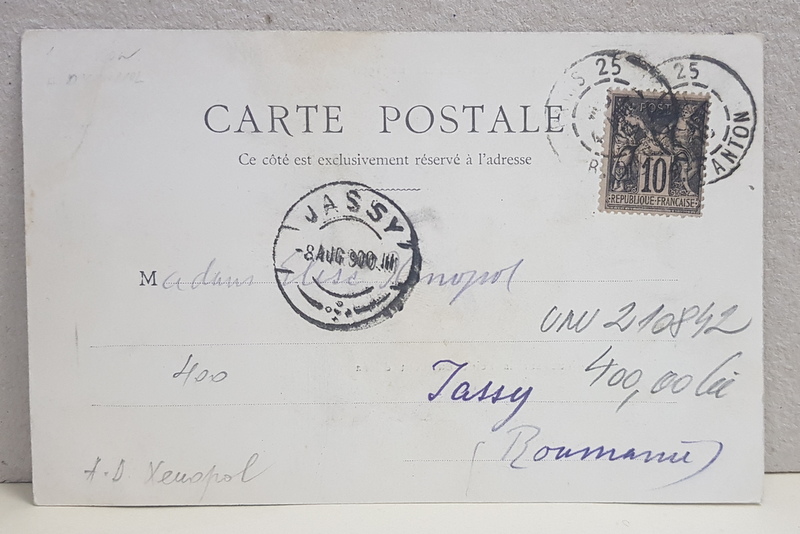 CARTE POSTALE
Ce côté est exclusivement réservé à l'adresse
25
25
ANTON
POST
10
RÉPUBLIQUE FRANÇAISE
JASSY
-8 AUG 900 III
Madame Elise Xenopol
UNU 210842
400
Jassy
400,00 lei
(Roumanie)
A.D Xenopol